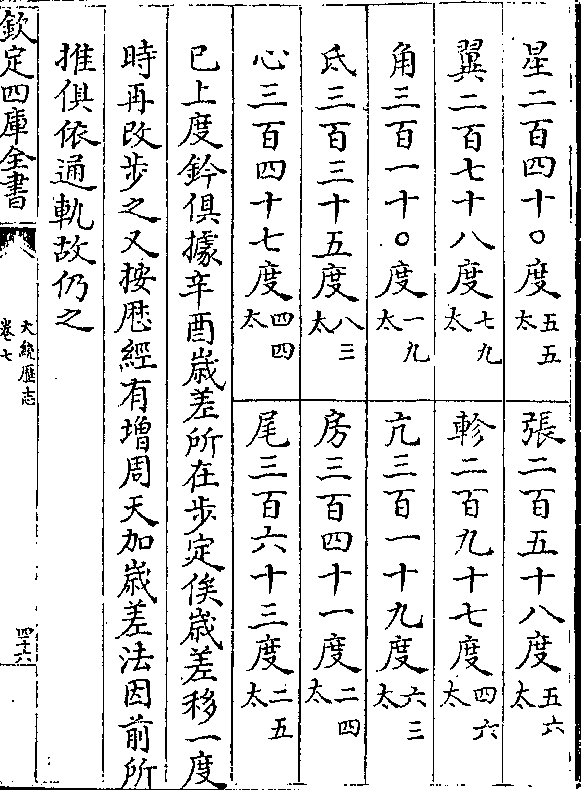 星二百四十〇度五五太
張二百五十八度五六太
翼二百七十八度七九太
軫二百九十七度四六太
角三百一十〇度一九太
亢三百一十九度六三太
氐三百三十五度八三太
房三百四十一度二四太
心三百四十七度四四太
尾三百六十三度二五太
已上度鈐俱據辛酉歲差所在步定俟歲差移一度
時再改步之又按厯經有增周天加歲差法因前所
推俱依通軌故仍之
欽定四庫全書
大統厯志
卷七
四十六